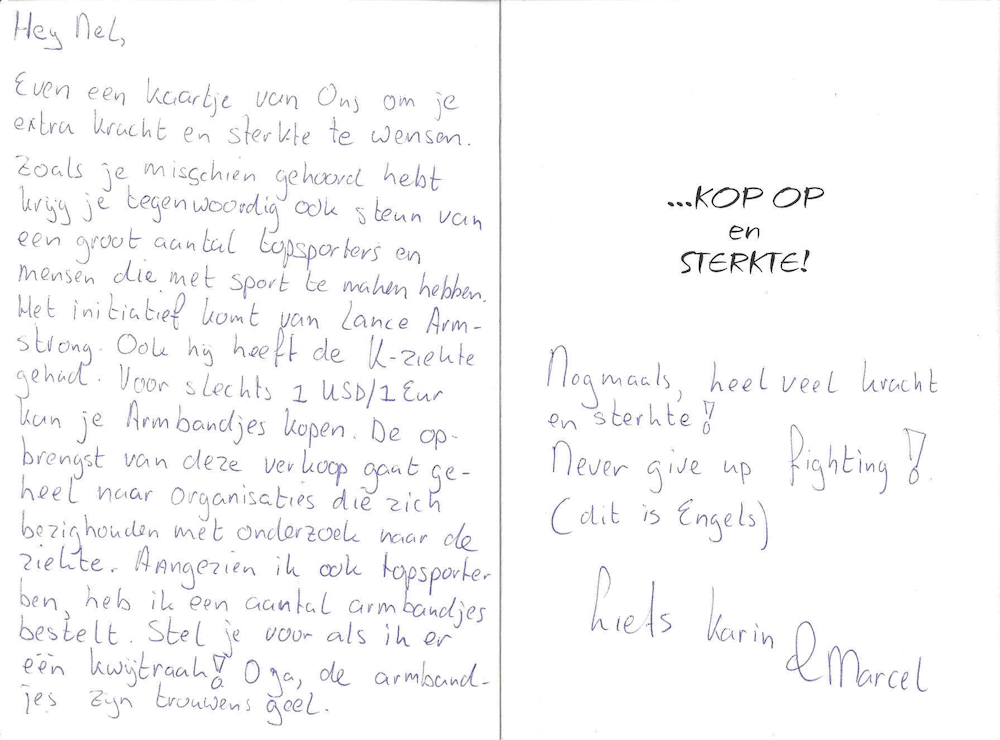 Hey Nel,
Even een kaartje van Ons om je
extra kracht en sterkte te wensen.
Zoals je misschien gehoord hebt
krijg je tegenwoordig ook steun van
een groot aantal topsporters en
mensen die met sport te maken hebben.
Het initiatief komt van Lance Arm-
strong. Ook hij heeft de K-ziekte
gehad. Voor slechts 1 USD/1 Eur
kun je Armbandjes kopen. De op-
brengst van deze verkoop gaat ge-
heel naar organisaties die zich
bezighouden met onderzoek naar de
ziekte. Aangezien ik ook topsporter
ben, heb ik een aantal armbandjes
bestelt. Stel je voor als ik er
één kwijtraak! O ja, de armband-
jes zijn trouwens geel.
...KOP OP
en
STERKTE!
Nogmaals, heel veel kracht
en sterkte!
Never give up fighting!
(dit is Engels)
Liefs Karin
& Marcel